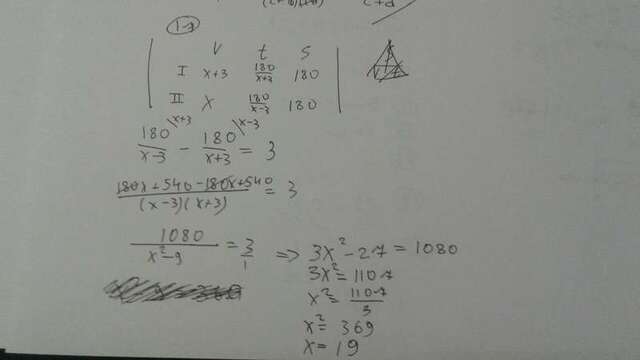 1-7
V t S
I x+3 180/x+3 180
II x 180/x-3 180
180/x-3 \x+3 - 180/x+3 \x-3 = 3
180x+540-180x+540/(x-3)(x+3) = 3
1080/x²-9 = 3/1 => 3x²-27=1080
3x²=1107
x²=1107/3
x²=369
x=19